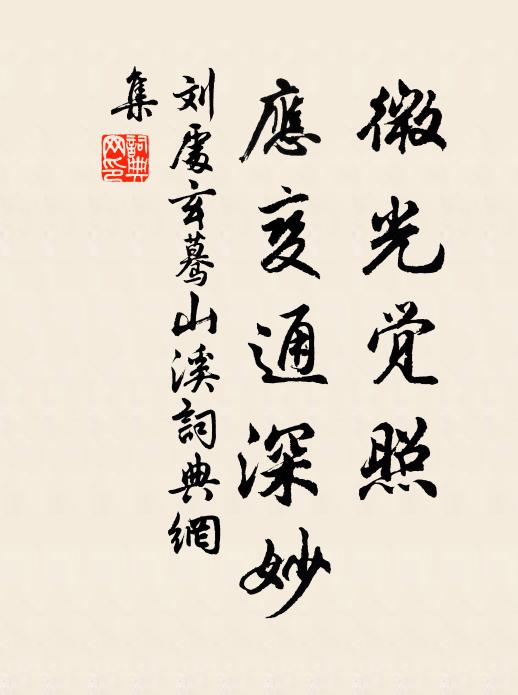 微光觉照
應变通深妙
刘處玄蓦山溪詞典網
集
詞典
网印